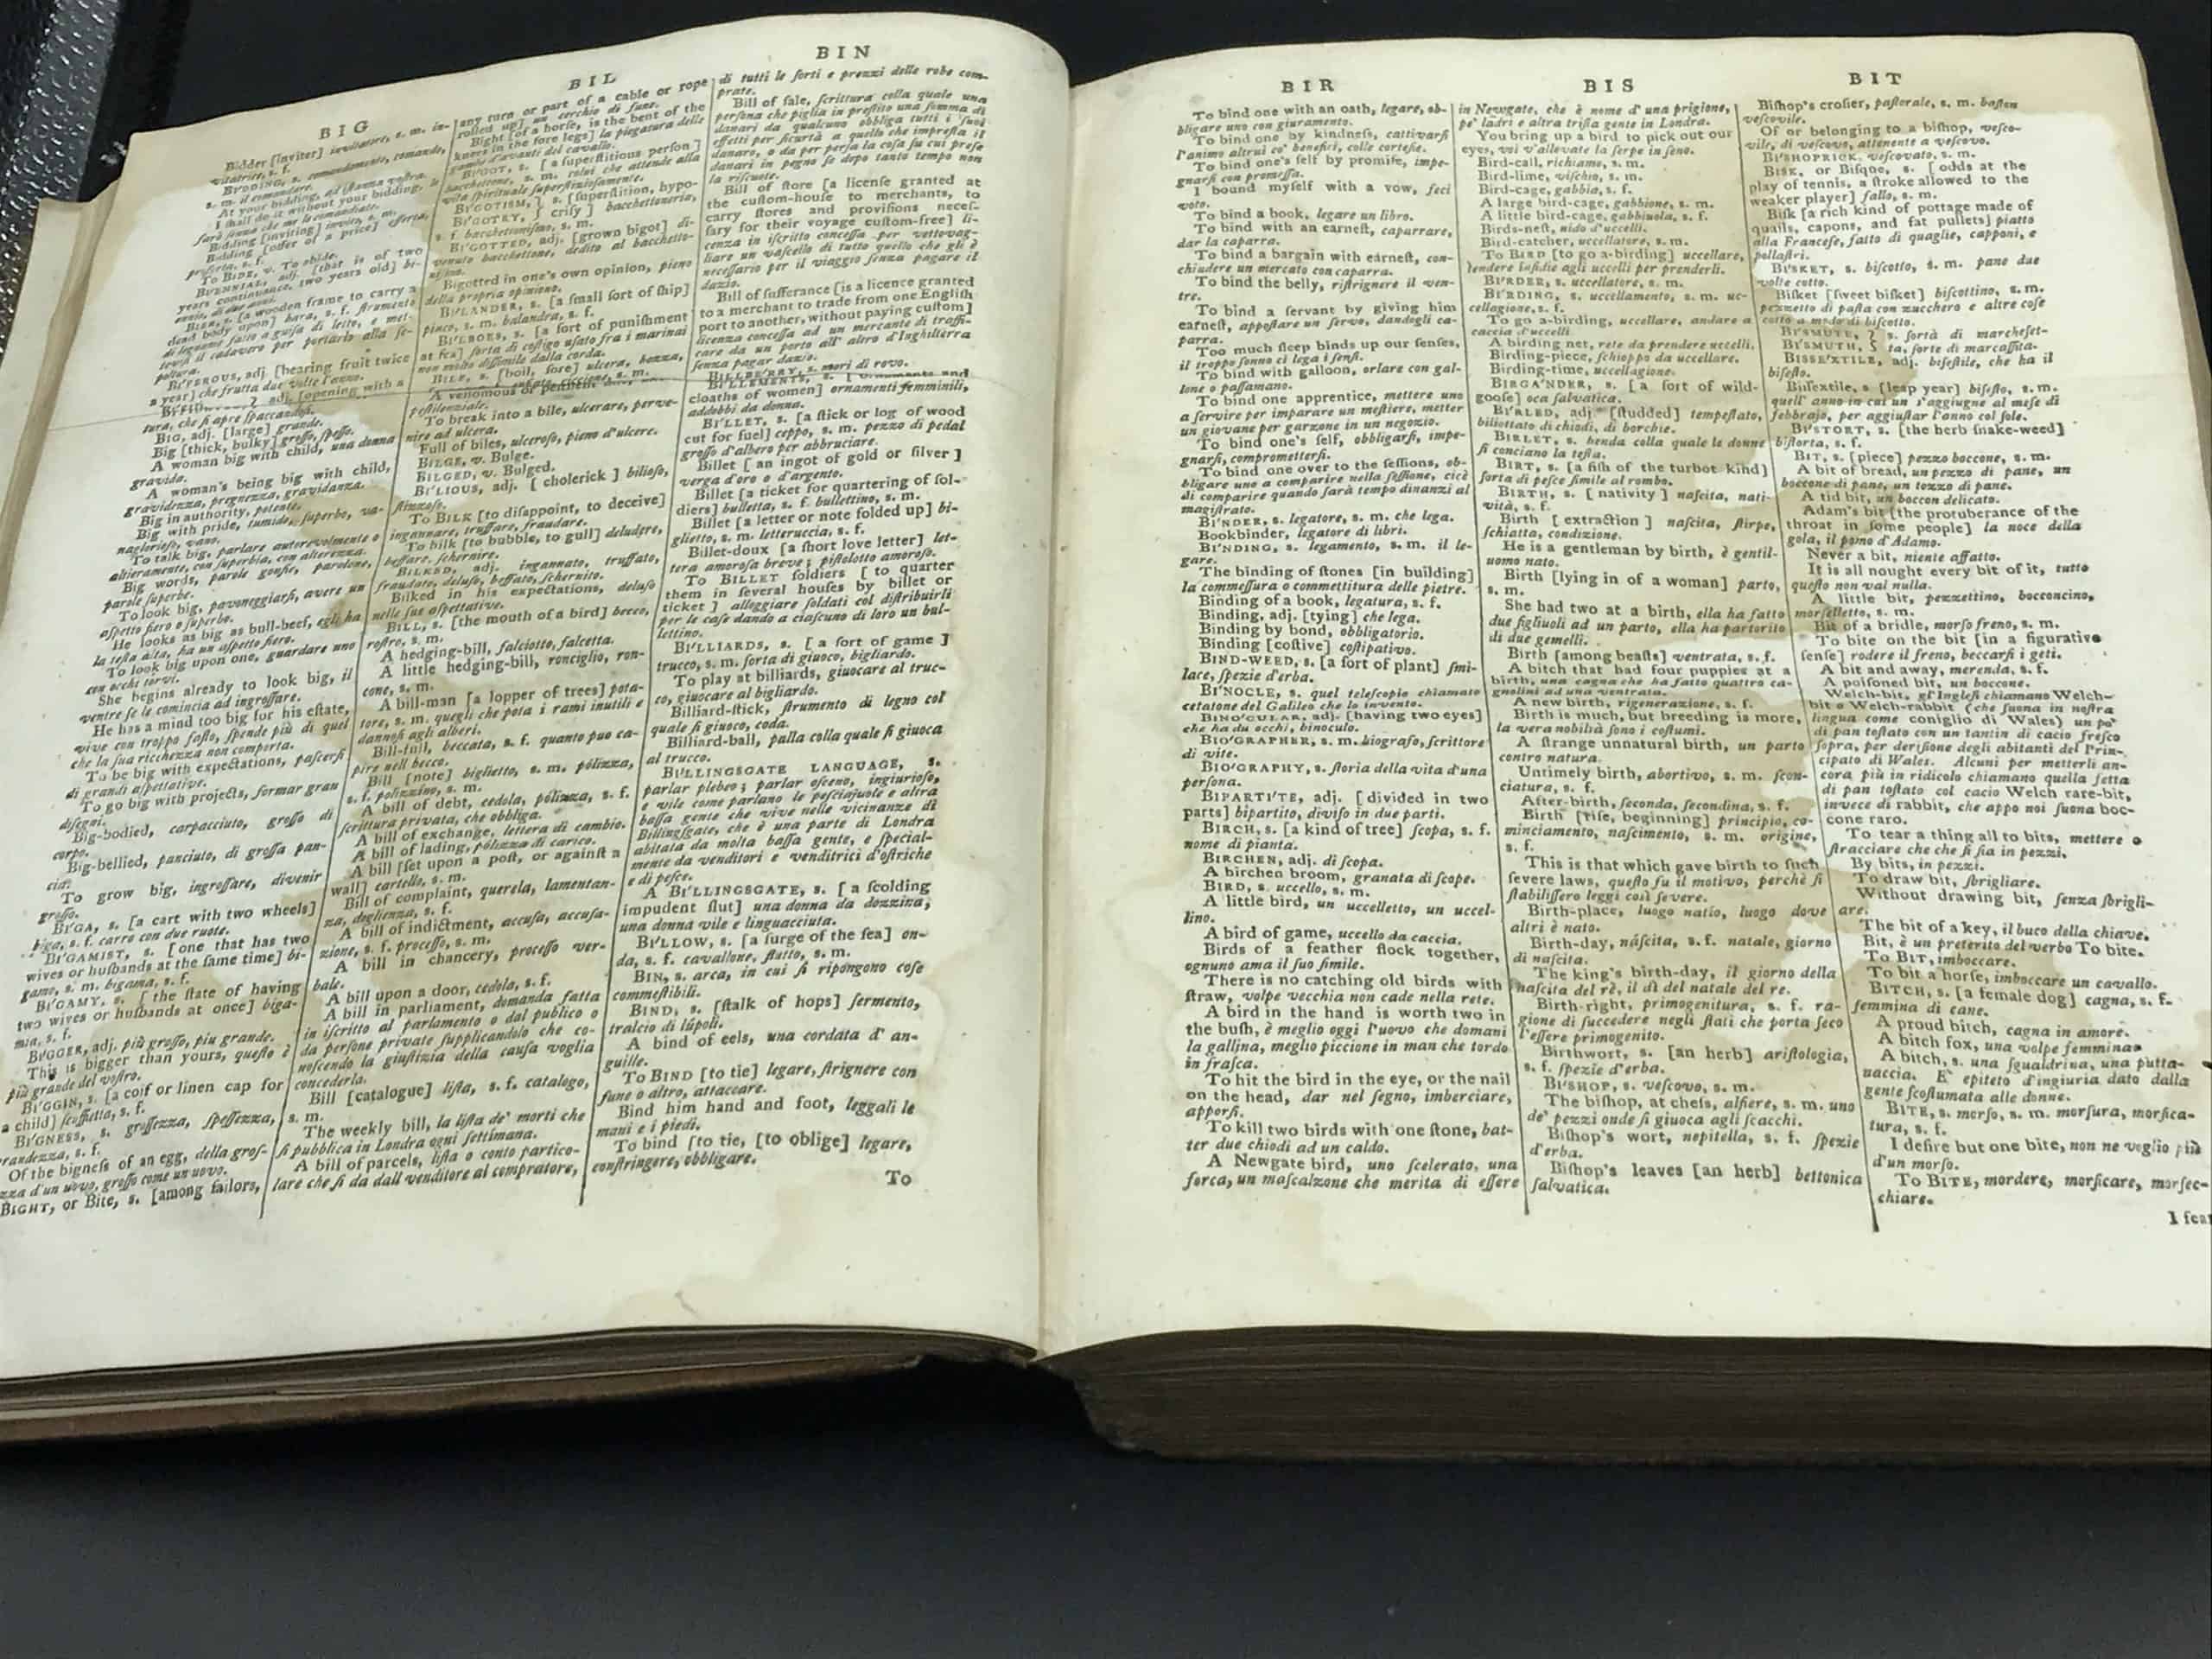 BIG
Bidder [inviter] invitatore, s. m. in-
vitatrice, s. f.
BIDDING, s. comandamento, comando,
s. m. il comandare.
At your bidding, ad iſtanza voſtra.
I ſhall do it without your bidding, lo
farò ſenza che me lo comandiate.
Bidding [inviting] invito, s. m.
Bidding [offer of a price] offerta,
proferta, s. f.
To BIDE, v. To abide.
BIENNIAL, adj. [that is of two
years continuance, two years old] bi-
ennio, di due anni.
BIER, s. [a wooden frame to carry a
dead body upon] bara, s. f. ſtrumento
di legname fatto a guiſa di letto, e met-
teviſi il cadavero per portarlo alla ſe-
poltura.
BI'FEROUS, adj. [bearing fruit twice
a year] che frutta due volte l'anno.
adj. [opening with a
tura, che ſi apre ſpaccandoſi.
BIG, adj. [large] grande.
Big [thick, bulky] groſſo, ſpeſſo.
A woman big with child, una donna
gravida.
A woman's being big with child,
gravidezza, pregnezza, gravidanza.
Big in authority, potente.
Big with pride, tumido, ſuperbo, va-
naglorioſo, vano.
To talk big, parlare autorevolmente o
altieramente, con ſuperbia, con alterezza.
Big words, parole gonfie, parolone,
parole ſuperbe.
To look big, pavoneggiarſi, avere un
aſpetto fiero o ſuperbo.
He looks as big as bull-beef, egli ha
la teſta alta, ha un aſpetto fiero.
To look big upon one, guardare uno
con occhi torvi.
She begins already to look big, il
ventre ſe le comincia ad ingroſſare.
He has a mind too big for his eſtate,
vive con troppo faſto, ſpende più di quel
che la ſua ricchezza non comporta.
To be big with expectations, paſcerſi
di grandi aſpettative.
To go big with projects, formar gran
diſegni.
Big-bodied, carpacciuto, groſſo di
corpo.
Big-bellied, panciuto, di groſſa pan-
cia.
To grow big, ingroſſare, divenir
groſſo.
BI'GA, s. [a cart with two wheels]
biga, s. f. carro con due ruote.
BI'GAMIST, s. [one that has two
wives or huſbands at the ſame time] bi-
gamo, s. m. bigama, s. f.
BI'GAMY, s. [the ſtate of having
two wives or huſbands at once] biga-
mia, s. f.
BI'GGER, adj. più groſſo, piu grande.
This is bigger than yours, queſto è
più grande del voſtro.
BI'GGIN, s. [a coif or linen cap for
a child] ſcuffietta, s. f.
BI'GNESS, s. groſſezza, ſpeſſezza,
grandezza, s. f.
Of the bigneſs of an egg, della groſ-
ſezza d'un uovo, groſſo come un uovo.
BIGHT, or Bite, s. [among ſailors,
BIL
any turn or part of a cable or rope
rolled up] un cerchio di fune.
Bight [of a horſe, is the bent of the
knees in the fore legs] la piegatura delle
gambe d'avanti del cavallo.
BI'GOT, s. [a ſuperſtitious perſon]
bacchettone, s. m. colui che attende alla
vita ſpirituale ſuperſtizioſamente.
BI'GOTISM, } s. [ſuperſtition, hypo-
BI'GOTRY, } criſy] bacchettoneria,
s. f. bacchettoniſmo, s. m.
BI'GOTTED, adj. [grown bigot] di-
venuto bacchettone, dedito al bacchetto-
niſmo.
Bigotted in one's own opinion, pieno
della propria opinione.
BI'LANDER, s. [a ſmall ſort of ſhip]
pinco, s. m. balandra, s. f.
BI'LBOES, s. [a ſort of puniſhment
at ſea] ſorta di caſtigo uſato fra i marinai
non molto diſſimile dalla corda.
BILE, s. [boil, ſore] ulcera, bozza,
s. m.
A venomous or
peſtilenziale.
To break into a bile, ulcerare, perve-
nire ad ulcera.
Full of biles, ulceroſo, pieno d'ulcere.
BILGE, v. Bulge.
BILGED, v. Bulged.
BI'LIOUS, adj. [cholerick] bilioſo,
ſtizzoſo.
To BILK [to diſappoint, to deceive]
ingannare, truffare, fraudare.
To bilk [to bubble, to gull] deludere,
beffare, ſchernire.
BILKED, adj. ingannato, truffato,
fraudato, deluſo, beffato, ſchernito.
Bilked in his expectations, deluſo
nelle ſue aſpettative.
BILL, s. [the mouth of a bird] becco,
roſtro, s. m.
A hedging-bill, falciotto, falcetta.
A little hedging-bill, ronciglio, ron-
cone, s. m.
A bill-man [a lopper of trees] pota-
tore, s. m. quegli che pota i rami inutili e
dannoſi agli alberi.
Bill-full, beccata, s. f. quanto puo ca-
pire nell becco.
Bill [note] biglietto, s. m. pòlizza,
s. f. polizzino, s. m.
A bill of debt, cedola, pòlizza, s. f.
ſcrittura privata, che obbliga.
A bill of exchange, lettera di cambio.
A bill of lading, pòlizza di carico.
A bill [ſet upon a poſt, or againſt a
wall] cartello, s. m.
Bill of complaint, querela, lamentan-
za, doglienza, s. f.
A bill of indictment, accuſa, accuſa-
zione, s. f. proceſſo, s. m.
A bill in chancery, proceſſo ver-
bale.
A bill upon a door, cedola, s. f.
A bill in parliament, domanda fatta
in iſcritto al parlamento o dal publico o
da perſone private ſupplicandolo che co-
noſcendo la giuſtizia della cauſa voglia
concederla.
Bill [catalogue] liſta, s. f. catalogo,
s. m.
The weekly bill, la liſta de' morti che
ſi pubblica in Londra ogni ſettimana.
A bill of parcels, liſta o conto partico-
lare che ſi da dall venditore al compratore,
BIN
di tutti le ſorti e prezzi delle robe com-
prate.
Bill of ſale, ſcrittura colla quale una
perſona che piglia in preſtito una ſomma di
danari da qualcuno obbliga tutti i ſuoi
effetti per ſicurtà a quello che impreſta il
danaro, o da per perſa la coſa ſu cui preſe
danari in pegno ſe dopo tanto tempo non
la riſcuote.
Bill of ſtore [a licenſe granted at
the cuſtom-houſe to merchants, to
carry ſtores and proviſions neceſ-
ſary for their voyage cuſtom-free] li-
cenza in iſcritto conceſſa per vettovag-
liare un vaſcello di tutto quello che gli è
neceſſario per il viaggio ſenza pagare il
dazio.
Bill of ſufferance [is a licence granted
to a merchant to trade from one Engliſh
port to another, without paying cuſtom]
licenza conceſſa ad un mercante di traffi-
care da un porto all' altro d'Inghilterra
ſenza pagar dazio.
BILLBE'RRY, s. mori di rovo.
BI'LLEMENTS, s. [ornaments and
cloaths of women] ornamenti femminili,
addobbi da donna.
BI'LLET, s. [a ſtick or log of wood
cut for fuel] ceppo, s. m. pezzo di pedal
groſſo d'albero per abbruciare.
Billet [an ingot of gold or ſilver]
verga d'oro o d'argento.
Billet [a ticket for quartering of ſol-
diers] bulletta, s. f. bullettino, s. m.
Billet [a letter or note folded up] bi-
glietto, s. m. letteruccia, s. f.
Billet-doux [a ſhort love letter] let-
tera amoroſa breve; piſtolotto amoroſo.
To BILLET ſoldiers [to quarter
them in ſeveral houſes by billet or
ticket] alloggiare ſoldati col diſtribuirli
per le caſe dando a ciaſcuno di loro un bul-
lettino.
BI'LLIARDS, s. [a ſort of game]
trucco, s. m. ſorta di giuoco, bigliardo.
To play at billiards, giuocare al truc-
co, giuocare al bigliardo.
Billiard-ſtick, ſtrumento di legno col
quale ſi giuoco, coda.
Billiard-ball, palla colla quale ſi giuoca
al trucco.
BI'LLINGSGATE LANGUAGE, s.
parlar plebeo; parlar oſceno, ingiurioſo,
e vile come parlano le peſciajuole e altra
baſſa gente che vive nelle vicinanze di
Billingſgate, che è una parte di Londra
abitata da molta baſſa gente, e ſpecial-
mente da venditori e venditrici d'oſtriche
e di peſce.
A BI'LLINGSGATE, s. [a ſcolding
impudent ſlut] una donna da dozzina,
una donna vile e linguacciuta.
BI'LLOW, s. [a ſurge of the ſea] on-
da, s. f. cavallone, flutto, s. m.
BIN, s. arca, in cui ſi ripongono coſe
commeſtibili.
BIND, s. [ſtalk of hops] ſermento,
tralcio di lùpoli.
A bind of eels, una cordata d' an-
guille.
To BIND [to tie] legare, ſtrignere con
fune o altro, attaccare.
Bind him hand and foot, leggali le
mani e i piedi.
To bind [to tie, [to oblige] legare,
conſtringere, obbligare.
To
BIR
To bind one with an oath, legare, ob-
bligare uno con giuramento.
To bind one by kindneſs, cattivarſi
l'animo altrui co' benefici, colle corteſie.
To bind one's ſelf by promiſe, impe-
gnarſi con promeſſa.
I bound myſelf with a vow, feci
voto.
To bind a book, legare un libro.
To bind with an earneſt, caparrare,
dar la caparra.
To bind a bargain with earneſt, con-
chiudere un mercato con caparra.
To bind the belly, riſtrignere il ven-
tre.
To bind a ſervant by giving him
earneſt, appoſtare un ſervo, dandogli ca-
parra.
Too much ſleep binds up our ſenſes,
il troppo ſonno ci lega i ſenſi.
To bind with galloon, orlare con gal-
lone o paſſamano.
To bind one apprentice, mettere uno
a ſervire per imparare un meſtiere, metter
un giovane per garzone in un negozio.
To bind one's ſelf, obbligarſi, impe-
gnarſi, comprometterſi.
To bind one over to the ſeſſions, ob-
bligare uno a comparire nella ſeſſione, cioè
di comparire quando ſarà tempo dinanzi al
magiſtrato.
BI'NDER, s. legatore, s. m. che lega.
Bookbinder, legatore di libri.
BI'NDING, s. legamento, s. m. il le-
gare.
The binding of ſtones [in building]
la commeſſura o commettitura delle pietre.
Binding of a book, legatura, s. f.
Binding, adj. [tying] che lega.
Binding by bond, obbligatorio.
Binding [coſtive] coſtipativo.
BIND-WEED, s. [a ſort of plant] ſmi-
lace, ſpezie d'erba.
BI'NOCLE, s. quel teleſcopio chiamato
cetatone del Galileo che lo inventò.
BINO'CULAR, adj. [having two eyes]
che ha du occhi, binoculo.
BIO'GRAPHER, s. m. biografo, ſcrittore
di vite.
BIO'GRAPHY, s. ſtoria della vita d'una
perſona.
BIPARTI'TE, adj. [divided in two
parts] bipartito, diviſo in due parti.
BIRCH, s. [a kind of tree] ſcopa, s. f.
nome di pianta.
BIRCHEN, adj. di ſcopa.
A birchen broom, granata di ſcope.
BIRD, s. uccello, s. m.
A little bird, un uccelletto, un uccel-
lino.
A bird of game, uccello da caccia.
Birds of a feather flock together,
ognuno ama il ſuo ſimile.
There is no catching old birds with
ſtraw, volpe vecchia non cade nella rete.
A bird in the hand is worth two in
the buſh, è meglio oggi l'uovo che domani
la gallina, meglio piccione in man che tordo
in fraſca.
To hit the bird in the eye, or the nail
on the head, dar nel ſegno, imberciare,
apporſi.
To kill two birds with one ſtone, bat-
ter due chiodi ad un caldo.
A Newgate bird, uno ſcelerato, una
forca, un maſcalzone che merita di eſſere
BIS
in Newgate, che è nome d' una prigione,
pe' ladri e altra triſta gente in Londra.
You bring up a bird to pick out our
eyes, voi v'allevate la ſerpe in ſeno.
Bird-call, richiamo, s. m.
Bird-lime, viſchio, s. m.
Bird-cage, gabbia, s. f.
A large bird-cage, gabbione, s. m.
A little bird-cage, gabbiuola, s. f.
Birds-neſt, nido d'uccelli.
Bird-catcher, uccellatore, s. m.
To BIRD [to go a-birding] uccellare,
tendere inſidie agli uccelli per prenderli.
BI'RDER, s. uccellatore, s. m.
BI'RDING, s. uccellamento, s. m. uc-
cellagione, s. f.
To go a-birding, uccellare, andare a
caccia d'uccelli.
A birding net, rete da prendere uccelli.
Birding-piece, ſchioppo da uccellare.
Birding-time, uccellagione.
BIRGA'NDER, s. [a ſort of wild-
gooſe] oca ſalvatica.
BI'RLED, adj. [ſtudded] tempeſtato,
biliottato di chiodi, di borchie.
BIRLET, s. benda colla quale le donne
ſi conciano la teſta.
BIRT, s. [a fiſh of the turbot kind]
ſorta di peſce ſimile al rombo.
BIRTH, s. [nativity] naſcita, nati-
vità, s. f.
Birth [extraction] naſcita, ſtirpe,
ſchiatta, condizione.
He is a gentleman by birth, è gentil-
uomo nato.
Birth [lying in of a woman] parto,
s. m.
She had two at a birth, ella ha fatto
due figliuoli ad un parto, ella ha partorito
di due gemelli.
Birth [among beaſts] ventrata, s. f.
A bitch that had four puppies at a
birth, una cagna che ha fatto quattro ca-
gnolini ad una ventrata.
A new birth, rigenerazione, s. f.
Birth is much, but breeding is more,
la vera nobilià ſono i coſtumi.
A ſtrange unnatural birth, un parto
contro natura.
Untimely birth, abortivo, s. m. ſcon-
ciatura, s. f.
After-birth, ſeconda, ſecondina, s. f.
Birth [riſe, beginning] principio, co-
minciamento, naſcimento, s. m. origine,
s. f.
This is that which gave birth to ſuch
ſevere laws, queſto fu il motivo, perchè ſi
ſtabiliſſero leggi così ſevere.
Birth-place, luogo natio, luogo dove
altri è nato.
Birth-day, nàſcita, s. f. natale, giorno
di naſcita.
The king's birth-day, il giorno della
naſcita del rè, il dì del natale del re.
Birth-right, primogenitura, s. f. ra-
gione di ſuccedere negli ſtati che porta ſeco
l'eſſere primogenito.
Birthwort, s. [an herb] ariſtologia,
s. f. ſpezie d'erba.
BI'SHOP, s. veſcovo, s. m.
The biſhop, at cheſs, alfiere, s. m. uno
de' pezzi onde ſi giuoca agli ſcacchi.
Biſhop's wort, nepitella, s. f. ſpezie
d'erba.
Biſhop's leaves [an herb] bettonica
ſalvatica.
BIT
Biſhop's croſier, paſtorale, s. m. baſton
veſcovile.
Of or belonging to a biſhop, veſco-
vile, di veſcovo, attenente a veſcovo.
BI'SHOPRICK, veſcovato, s. m.
BISK, or Biſque, s. [odds at the
play of tennis, a ſtroke allowed to the
weaker player] fallo, s. m.
Biſk [a rich kind of pottage made of
quails, capons, and fat pullets] piatto
alla Franceſe, fatto di quaglie, capponi, e
pollaſtri.
BI'SKET, s. biſcotto, s. m. pane due
volte cotto.
Biſket [ſweet biſket] biſcottino, s. m.
pezzetto di paſta con zucchero e altre coſe
cotto a modo di biſcotto.
BI'SMUTE, } s. ſortà di marcheſet-
BI'SMUTH, } ta, ſorte di marcaſſita.
BISSE'XTILE, adj. biſeſtile, che ha il
biſeſto.
Biſſextile, s [leap year] biſeſto, s. m.
quell' anno in cui un s'aggiugne al meſe di
febbrajo, per aggiuſtar l'anno col ſole.
BI'STORT, s. [the herb ſnake-weed]
biſtorta, s. f.
BIT, s. [piece] pezzo boccone, s. m.
A bit of bread, un pezzo di pane, un
boccone di pane, un tozzo di pane.
A tid bit, un boccon delicato.
Adam's bit [the protuberance of the
throat in ſome people] la noce della
gola, il pomo d'Adamo.
Never a bit, niente affatto.
It is all nought every bit of it, tutto
queſto non val nulla.
A little bit, pezzettino, bocconcino,
morſelletto, s. m.
Bit of a bridle, morſo freno, s. m.
To bite on the bit [in a figurative
ſenſe] rodere il freno, beccarſi i geti.
A bit and away, merenda, s. f.
A poiſoned bit, un boccone.
Welch-bit, gl'Ingleſi chiamano Welch-
bit o Welch-rabbit (che ſuona in noſtra
lingua come coniglio di Wales) un po'
di pan toſtato con un tantin di cacio freſco
ſopra, per deriſione degli abitanti del Prin-
cipato di Wales. Alcuni per metterli an-
cora più in ridicolo chiamano quella fetta
di pan toſtato col cacio Welch rare-bit,
invece di rabbit, che appo noi ſuona boc-
cone raro.
To tear a thing all to bits, mettere o
ſtracciare che che ſi ſia in pezzi.
By bits, in pezzi.
To draw bit, ſbrigliare.
Without drawing bit, ſenza ſbrigli-
are.
The bit of a key, il buco della chiave.
Bit, è un preterito del verbo To bite.
To BIT, imboccare.
To bit a horſe, imboccare un cavallo.
BITCH, s. [a female dog] cagna, s. f.
femmina di cane.
A proud bitch, cagna in amore.
A bitch fox, una volpe femmina.
A bitch, s. una ſgualdrina, una putta-
naccia. E' epiteto d'ingiuria dato dalla
gente ſcoſtumata alle donne.
BITE, s. morſo, s. m. morſura, morſica-
tura, s. f.
I deſire but one bite, non ne voglio più
d'un morſo.
To BITE, mordere, morſicare, morſec-
chiare.
I fear